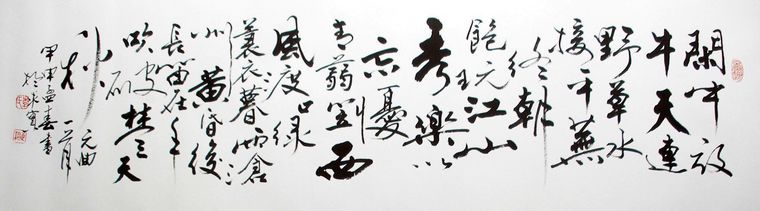 閑中放
牛天連
野草水
接平蕪
終朝
飽玩江山
秀樂以
忘憂
青蒻笠西
風渡口綠
蓑衣暮雨滄
州黃昏後
長笛在手
吹破楚天
秋 元曲一首
甲午孟春書